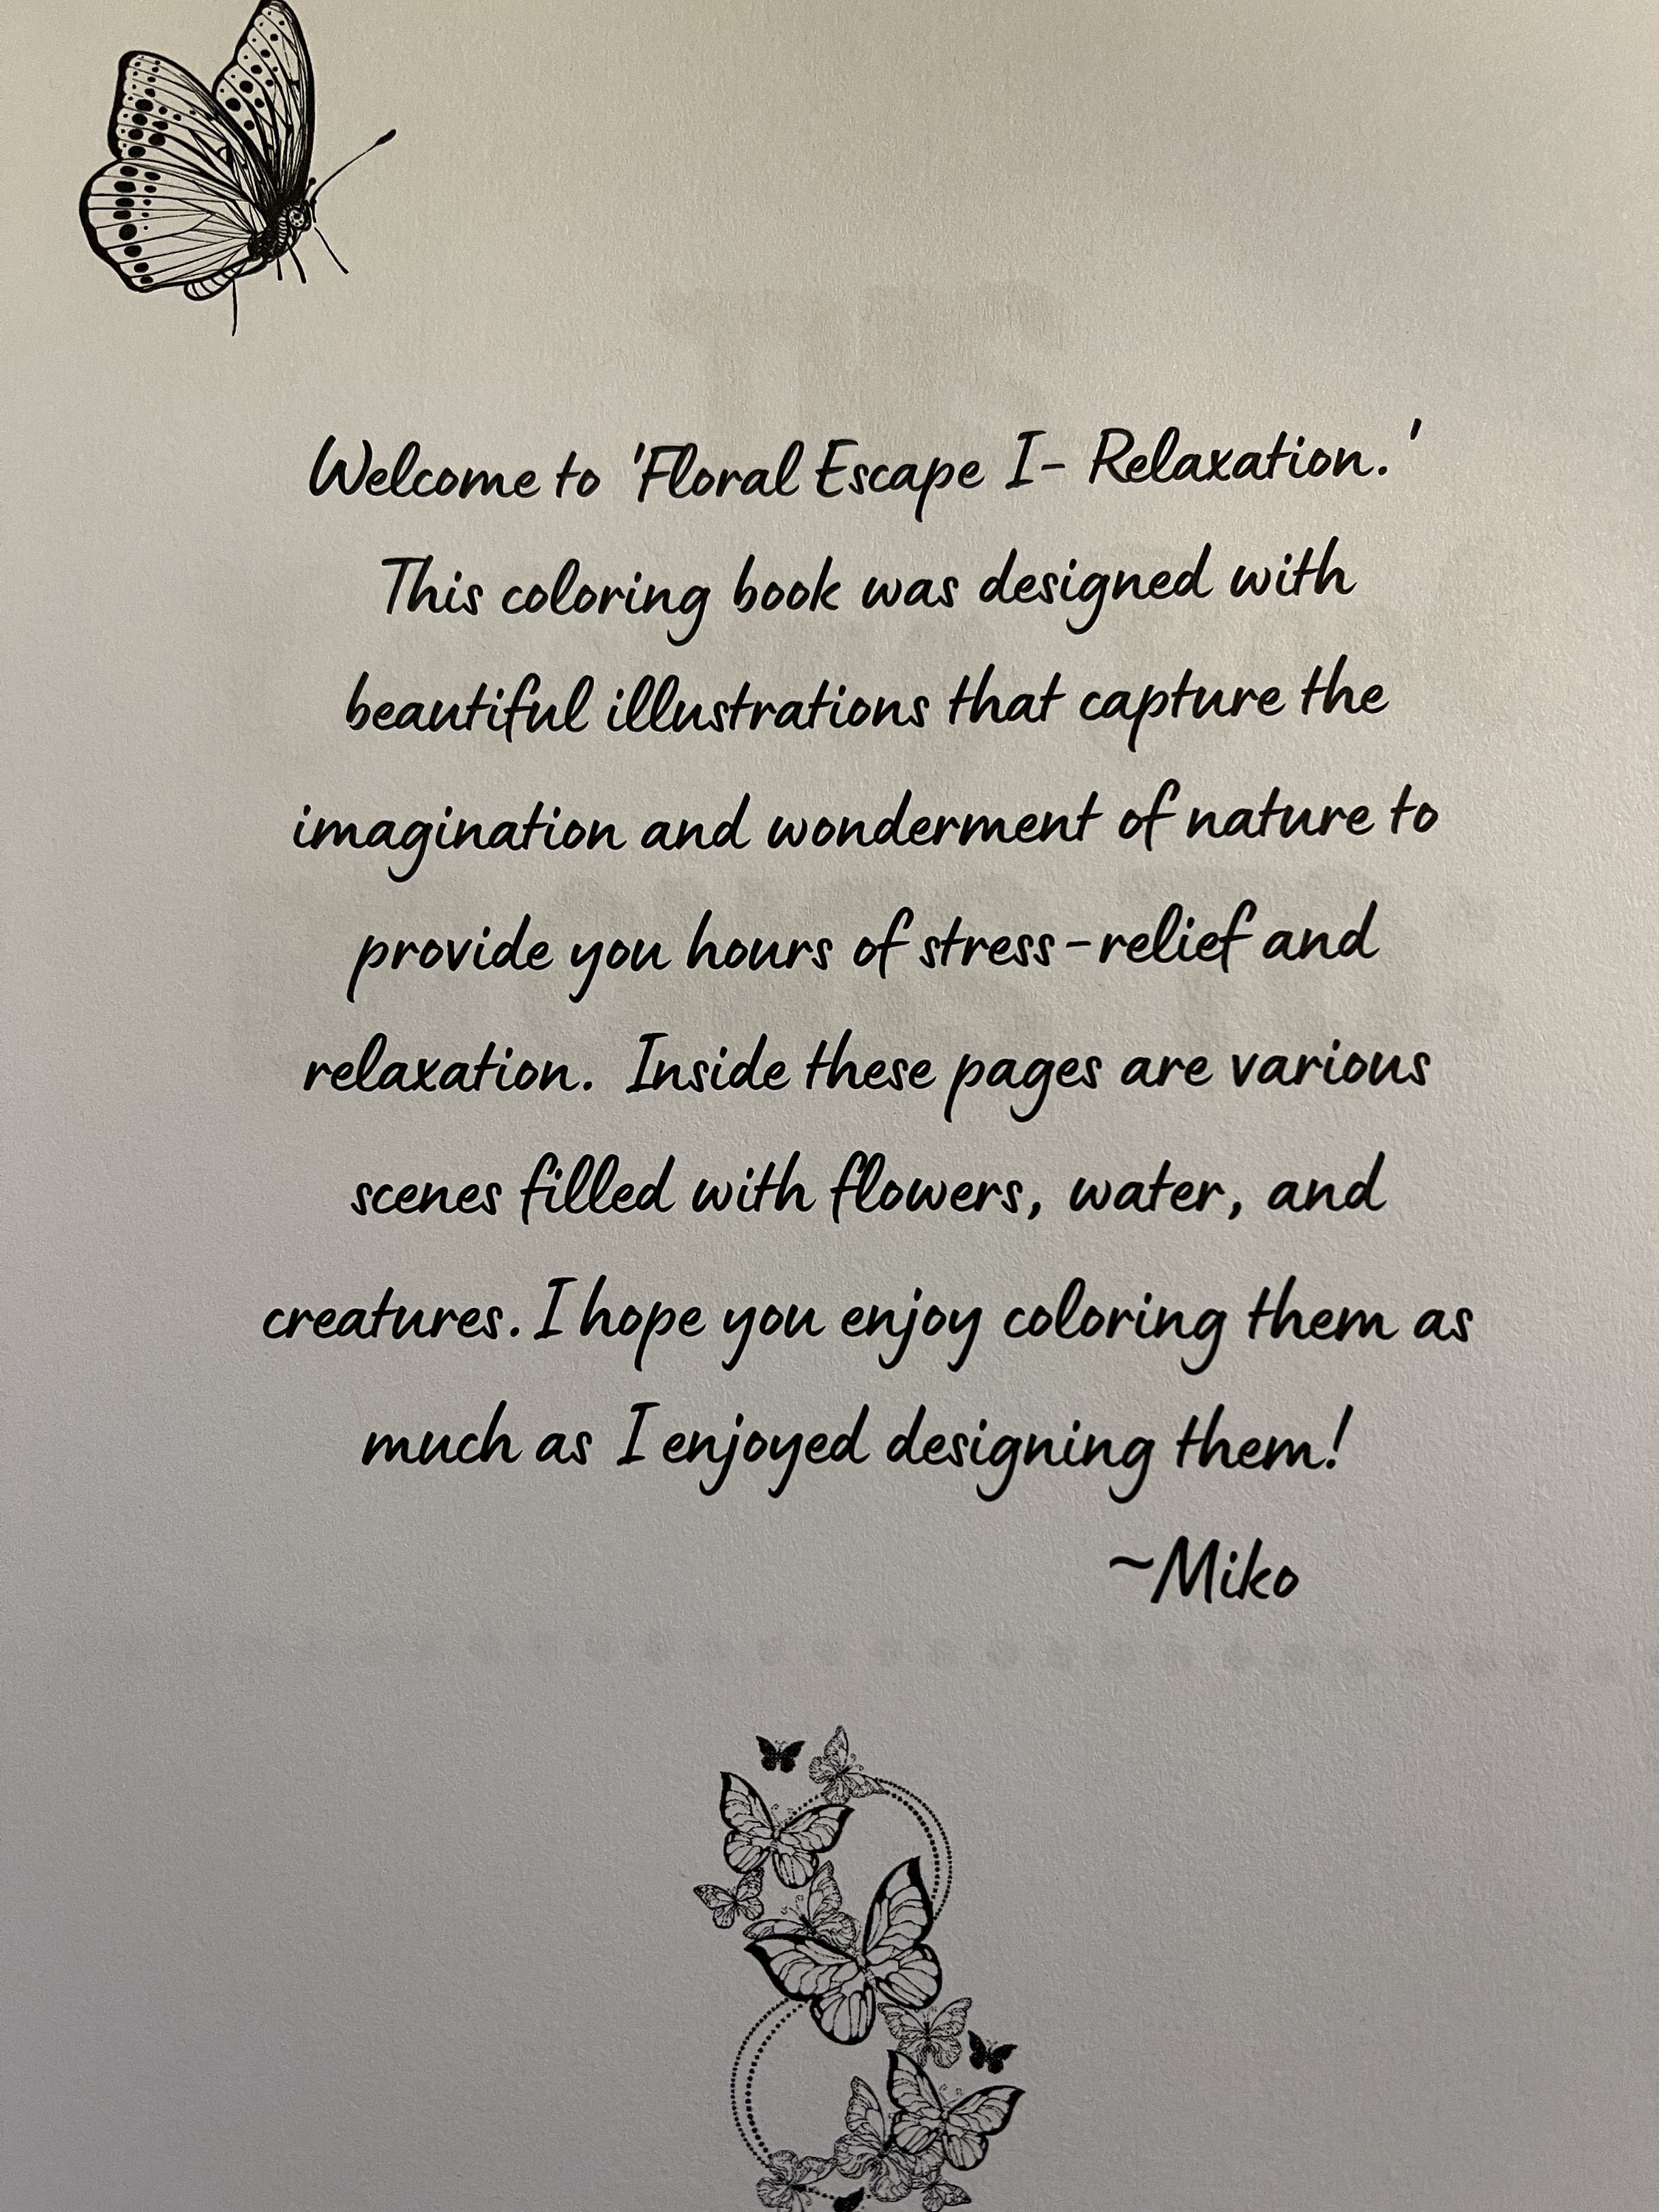 Welcome to 'Floral Escape I- Relaxation.'
This coloring book was designed with
beautiful illustrations that capture the
imagination and wonderment of nature to
provide you hours of stress-relief and
relaxation. Inside these pages are various
scenes filled with flowers, water, and
creatures. I hope you enjoy coloring them as
much as I enjoyed designing them!
~Miko